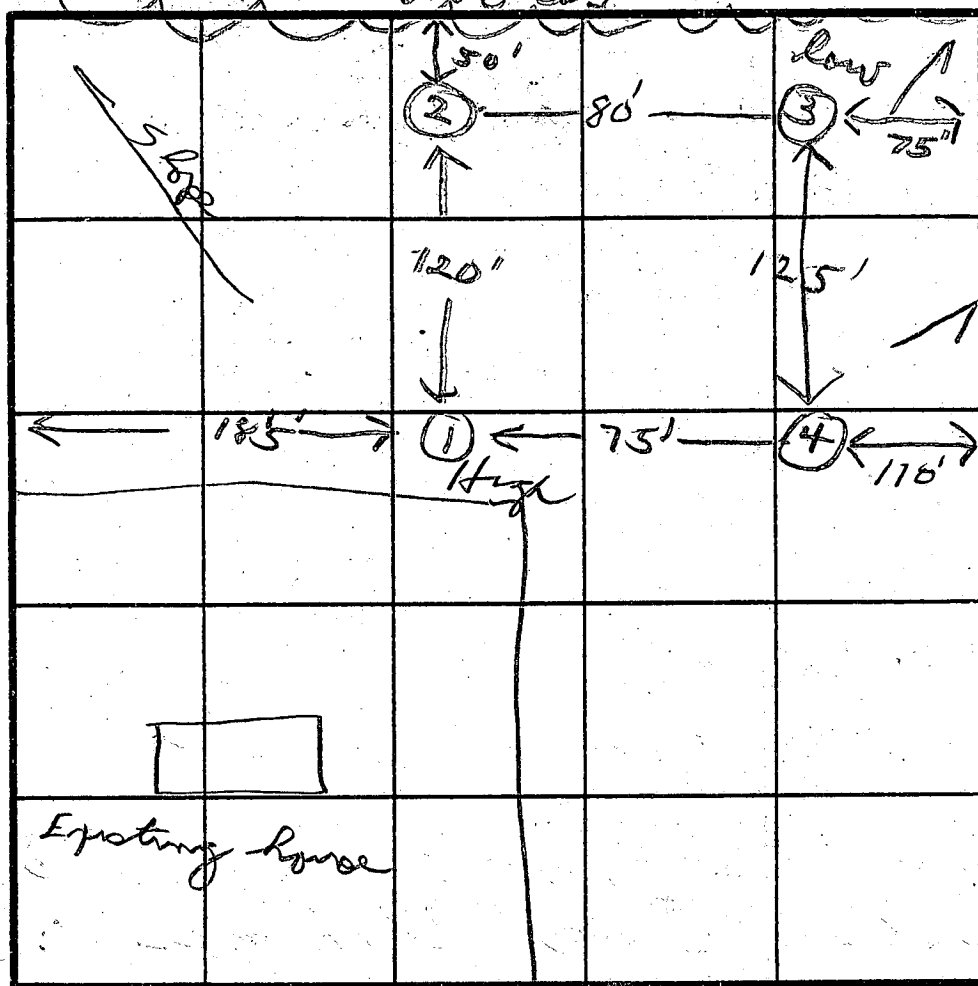 50'
low
② 80' ③ 75"
Slope
120" 125'
185' ① 75' ④ 110'
High
Existing house